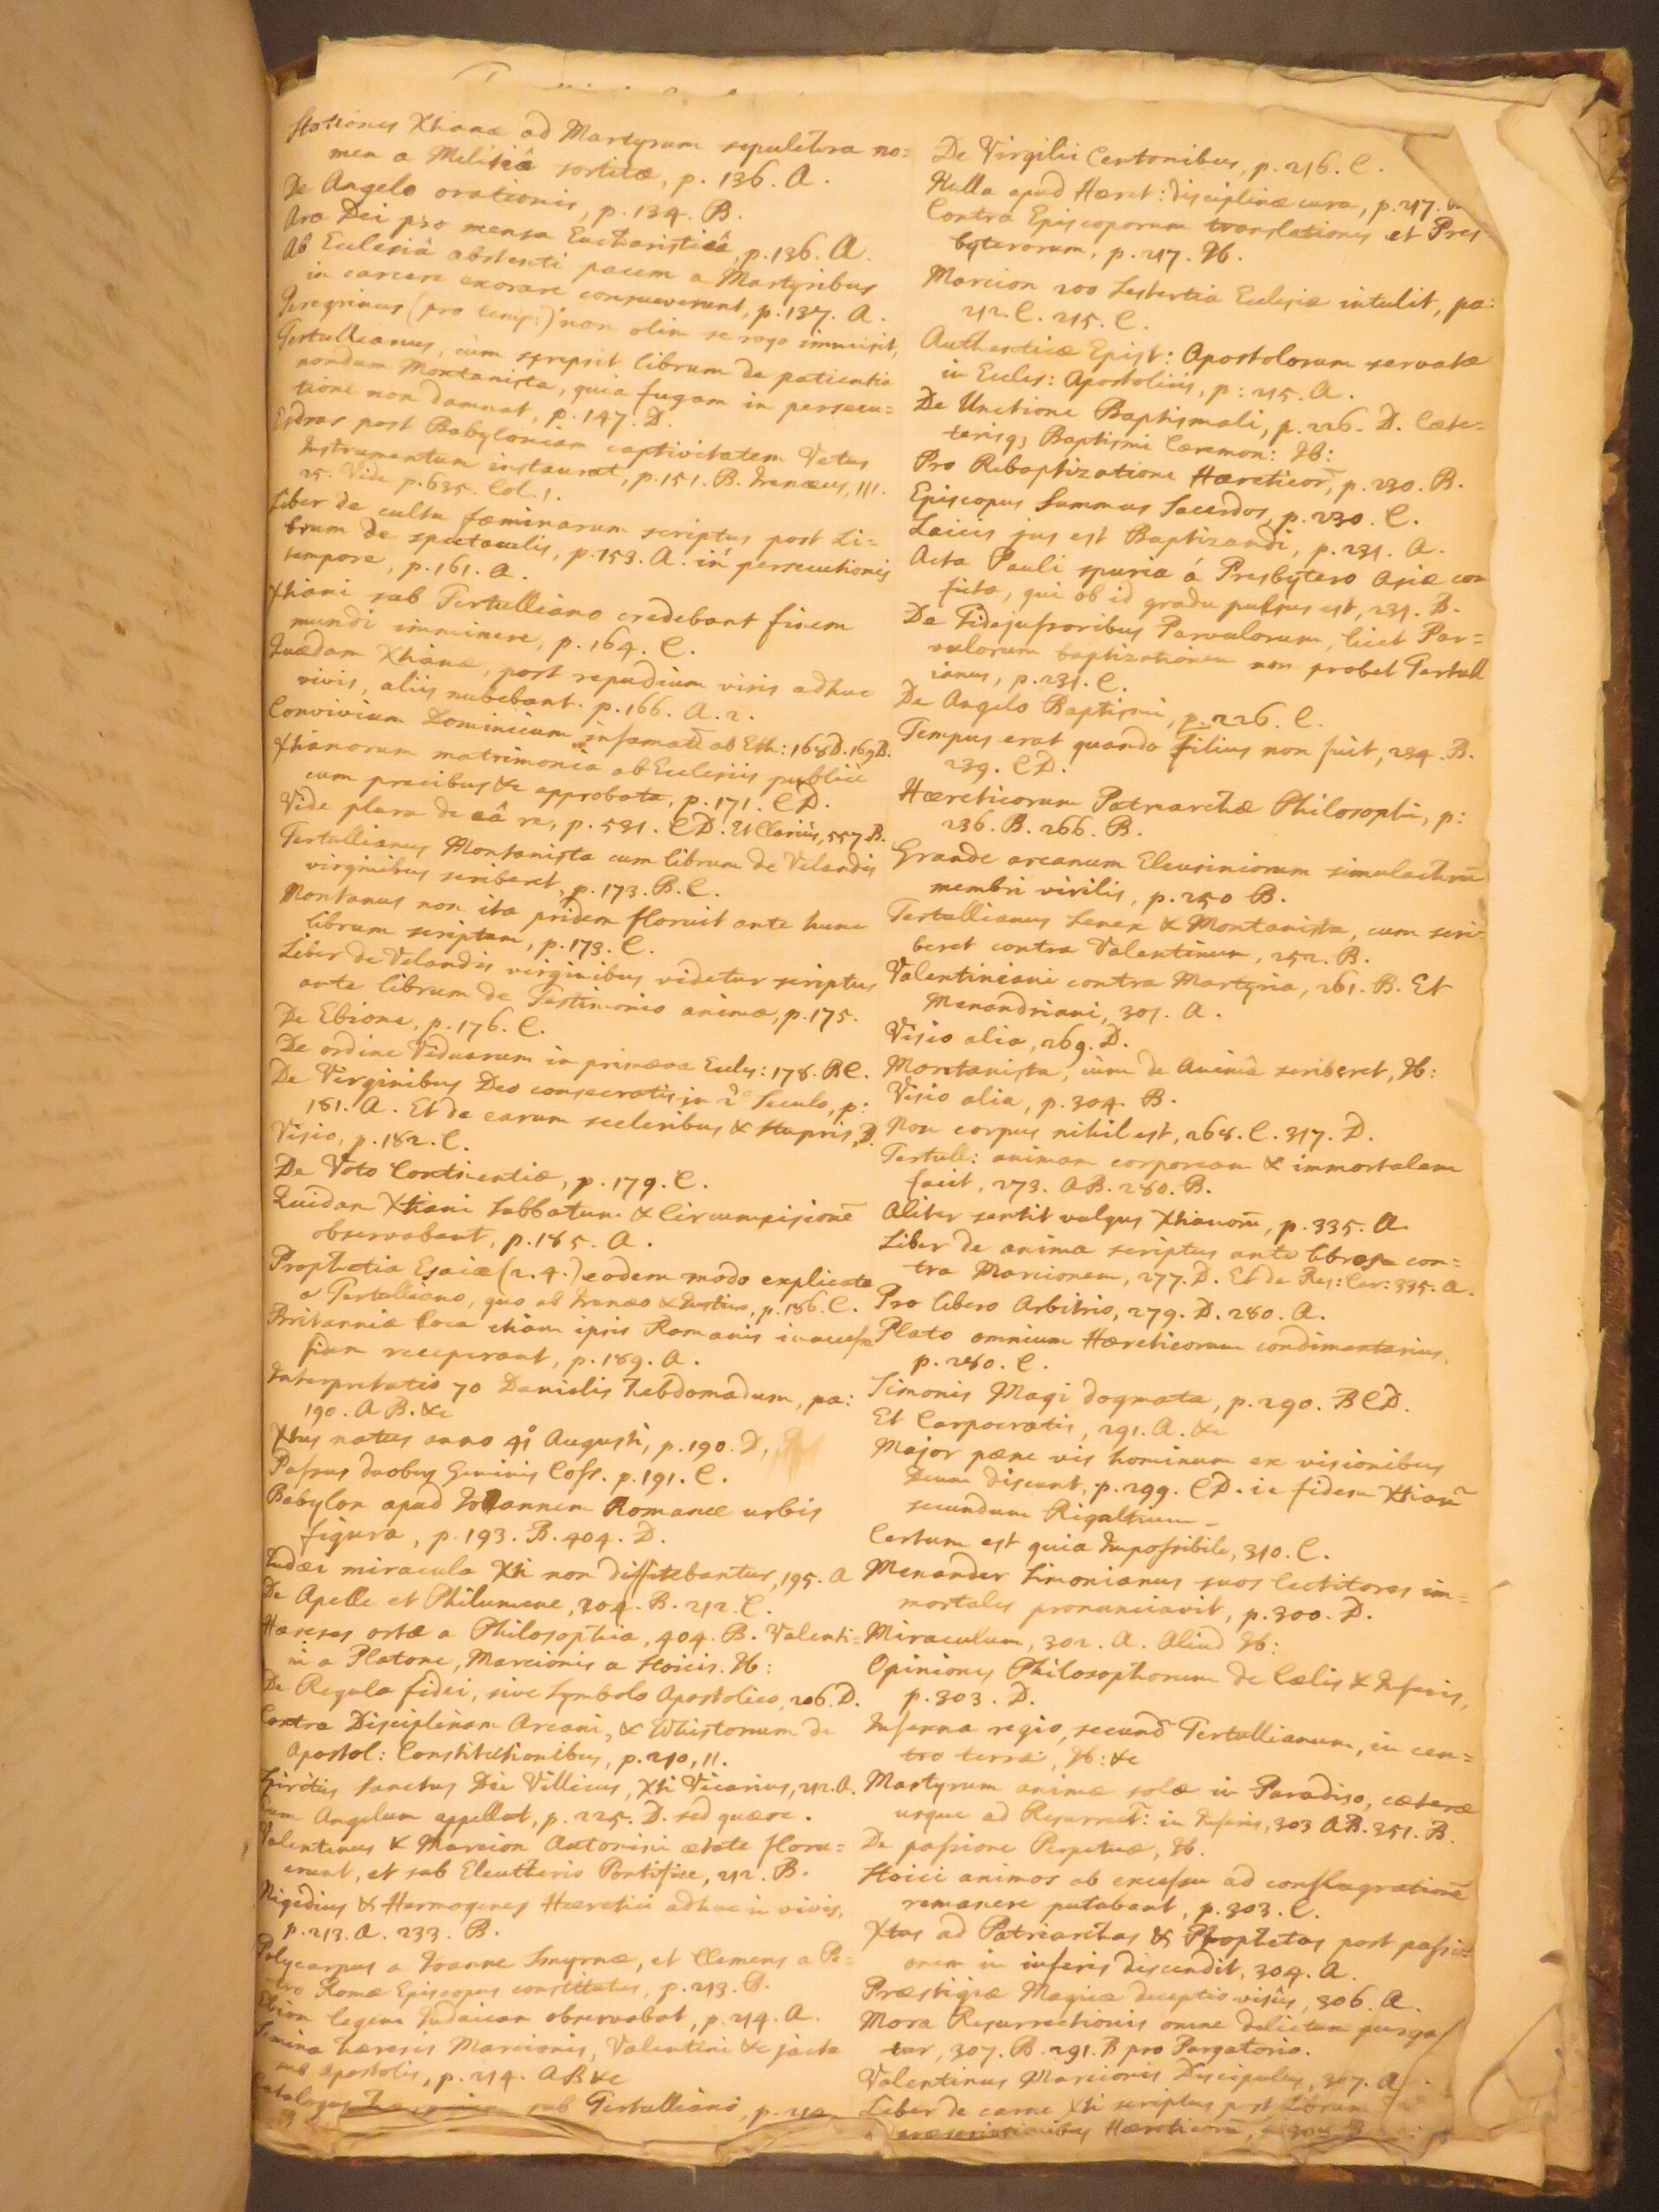 Stationes Xhanæ ad Martyrum sepulchra no=
men a Militiâ sortitæ, p. 136. A.
De Angelo orationis, p. 134. B.
Ara Dei pro mensa Eucharisticâ, p. 136. A.
Ab Ecclesiâ abstenti pacem a Martyribus
in carcere exorare consueverunt, p. 137. A.
Peregrinus (pro temp:) non olim se rogo immisit,
Tertullianus, cùm scripsit librum de patientia
nondum Montanista, quia fugam in persecu=
tione non damnat, p. 147. D.
Esdras post Babyloniam captivitatem Vetus
Instrumentum instaurat, p. 151. B. Irenæus, 111.
25. Vide p. 635. Col. 1.
Liber de cultu fæminarum scriptus post Li=
brum de spectaculis, p. 153. A. in persecutionis
tempore, p. 161. A.
Xhiani sub Tertulliano credebant finem
mundi imminere, p. 164. C.
Quædam Xhianæ, post repudium viris adhuc
vivis, aliis nubebant. p. 166. A. 2.
Convivium Dominicum infamatū ab Eth: 168 D. 169 B.
Xhianorum matrimonia ab Ecclesiis publicè
cum precibus &c approbata, p. 171. C D.
Vide plura de eâ re, p. 531. C D. Et Clariùs, 557 B.
Tertullianus Montanista cum librum de Velandis
virginibus scriberet, p. 173. B. C.
Montanus non ita pridem floruit ante hunc
librum scriptum, p. 173. C.
Liber de Velandis virginibus videtur scriptus
ante librum de Testimonio animæ, p. 175.
De Ebione, p. 176. C.
De ordine Viduarum in primæva Eccles: 178. B C.
De Virginibus Deo consecratis in 2º Seculo, p:
181. A. Et de earum sceleribus & stupris, D.
Visio, p. 182. C.
De Voto Continentiæ, p. 179. C.
Quidam Xtiani Sabbatum & Circumcisionē
observabant, p. 185. A.
Prophetia Esaiæ (2. 4.) eodem modo explicata
a Tertulliano, quo ab Irenæo & Justino, p. 186. C.
Britanniæ loca etiam ipsis Romanis inaccessa
fidem receperant, p. 189. A.
Interpretatio 70 Danielis hebdomadum, pa:
190. A B. &c
Xtus natus anno 41º Augusti, p. 190. D,
Passus duobus Geminis Coss. p. 191. C.
Babylon apud Johannem Romanæ urbis
figura, p. 193. B. 404. D.
Judæi miracula Xti non diffitebantur, 195. A
De Apelle et Philumene, 204. B. 212. C.
Hæreses ortæ a Philosophia, 404. B. Valenti=
ni a Platone, Marcionis a Stoicis. Ib:
De Regula fidei, sive Symbolo Apostolico, 206. D.
Contra Disciplinam Arcani, & Whistonum de
Apostol: Constitutionibus, p. 210, 11.
Spiritus Sanctus Dei Villicus, Xti Vicarius, 212. A.
Eum Angelum appellat, p. 225. D. sed quære.
Valentinus & Marcion Antonini ætate floru=
erunt, et sub Eleutherio Pontifice, 212. B.
Nigidius & Hermogenes Hæretici adhuc in vivis,
p. 213. A. 233. B.
Polycarpus a Joanne Smyrnæ, et Clemens a Pe=
tro Romæ Episcopus constitutus, p. 213. B.
Ebion legem Judaicam observabat, p. 214. A.
Semina hæresis Marcionis, Valentini &c jacta
sub Apostolis, p. 214. A B &c
Catalogus sub Tertulliano, p.
De Virgilii Centonibus, p. 216. C.
Nulla apud Hæret: disciplinæ cura, p. 217.
Contra Episcoporum translationes et Pres=
byterorum, p. 217. Ib.
Marcion 200 Sestertia Ecclesiæ intulit, pa:
212. C. 215. C.
Authenticæ Epist: Apostolorum servatæ
in Eccles: Apostolicis, p: 215. A.
De Unctione Baptismali, p. 226. D. Cæte=
terisq; Baptismi Cæremon: Ib:
Pro Rebaptizatione Hæreticor̄, p. 230. B.
Episcopus Summus Sacerdos, p. 230. C.
Laicis jus est Baptizandi, p. 231. A.
Acta Pauli spuria á Presbytero Asiæ con
ficta, qui ob id gradu pulsus est, 231. B.
De Fidejussoribus Parvulorum, licet Par=
vulorum baptizationem non probet Tertull
ianus, p. 231. C.
De Angelo Baptismi, p. 226. C.
Tempus erat quando filius non fuit, 234. B.
239. C D.
Hæreticorum Patriarchæ Philosophi, p:
236. B. 266. B.
Grande arcanum Eleusiniorum simulachrū
membri virilis, p. 250 B.
Tertullianus Senex & Montanista, cum scri=
beret contra Valentinum, 252. B.
Valentiniani contra Martyria, 261. B. Et
Menandriani, 301. A.
Visio alia, 269. D.
Montanista, cùm de Animâ scriberet, Ib:
Visio alia, p. 304. B.
Non corpus nihil est, 268. C. 317. D.
Tertull: animam corpoream & immortalem
facit, 273. A B. 280. B.
Aliter sentit vulgus Xhianorū, p. 335. A.
Liber de anima scriptus ante libros con=
tra Marcionem, 277. D. Et de Res: Car: 335. A.
Pro libero Arbitrio, 279. D. 280. A.
Plato omnium Hæreticorum condimentarius,
p. 280. C.
Simonis Magi dogmata, p. 290. B C D.
Et Carpocratis, 291. A. &c
Major pæne vis hominum ex visionibus
Deum discunt, p. 299. C D. i.e fidem Xtianā
secundum Rigaltium
Certum est quia Impossibile, 310. C.
Menander Simonianus suos lectitores im=
mortales pronunciavit, p. 300. D.
Miraculum, 302. A. Aliud Ib:
Opiniones Philosophorum de Cælis & Inferis,
p. 303. D.
Inferna regio, secund̄ Tertullianum, in cen=
tro terræ, Ib: &c
Martyrum animæ solæ in Paradiso, cæteræ
usque ad Resurrect̄: in Inferis, 303 A B. 351. B.
De passione Perpetuæ, Ib.
Stoici animos ab excessu ad conflagrationē
remanere putabant, p. 303. C.
Xtus ad Patriarchas & Prophetas post passi=
onem in inferis discendit, 304. A.
Præstigiæ Magicæ deceptio visûs, 306. A.
Mora Resurrectionis omne delictum purga
tur, 307. B. 291. B pro Purgatorio.
Valentinus Marcionis Discipulus, 307. A
Liber de carne Xti scriptus post librum
Hæreticorū,